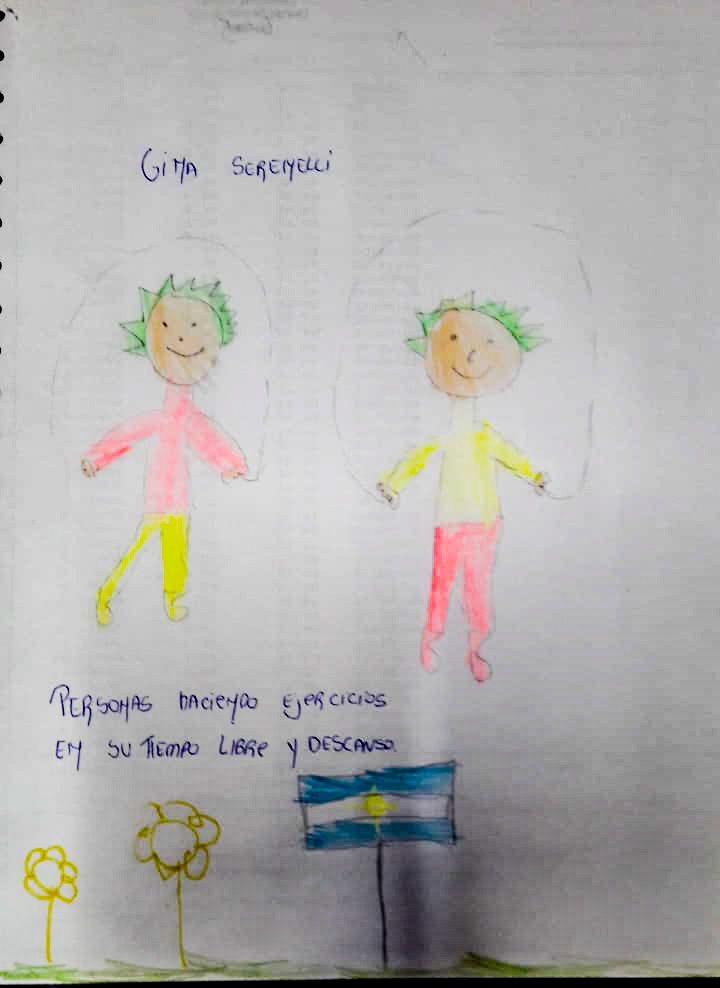 GiNA SEREMELLi
PERSONAS HACIENDO EJERCICIOS
EN SU TIEMPO LIBRE Y DESCANSO.